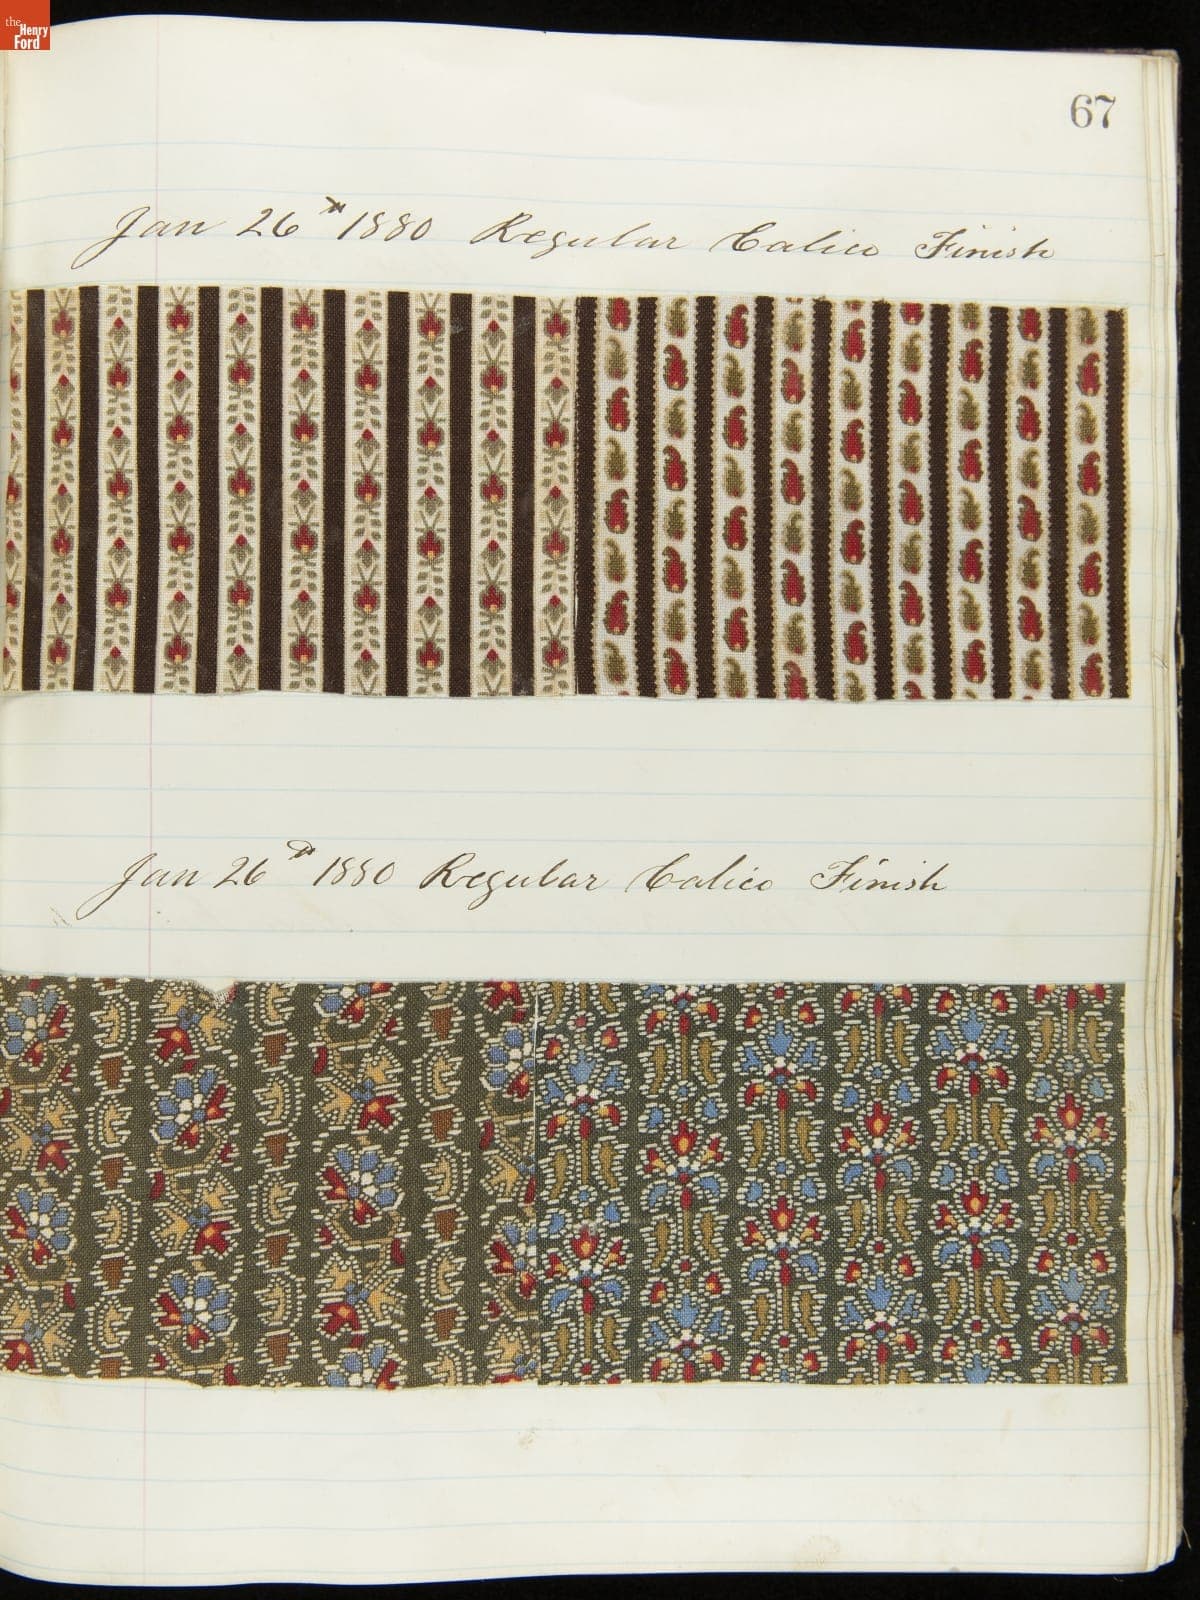 the
Henry
Ford
67
Jan 26th 1880 Regular Calico Finish
Jan 26th 1880 Regular Calico Finish